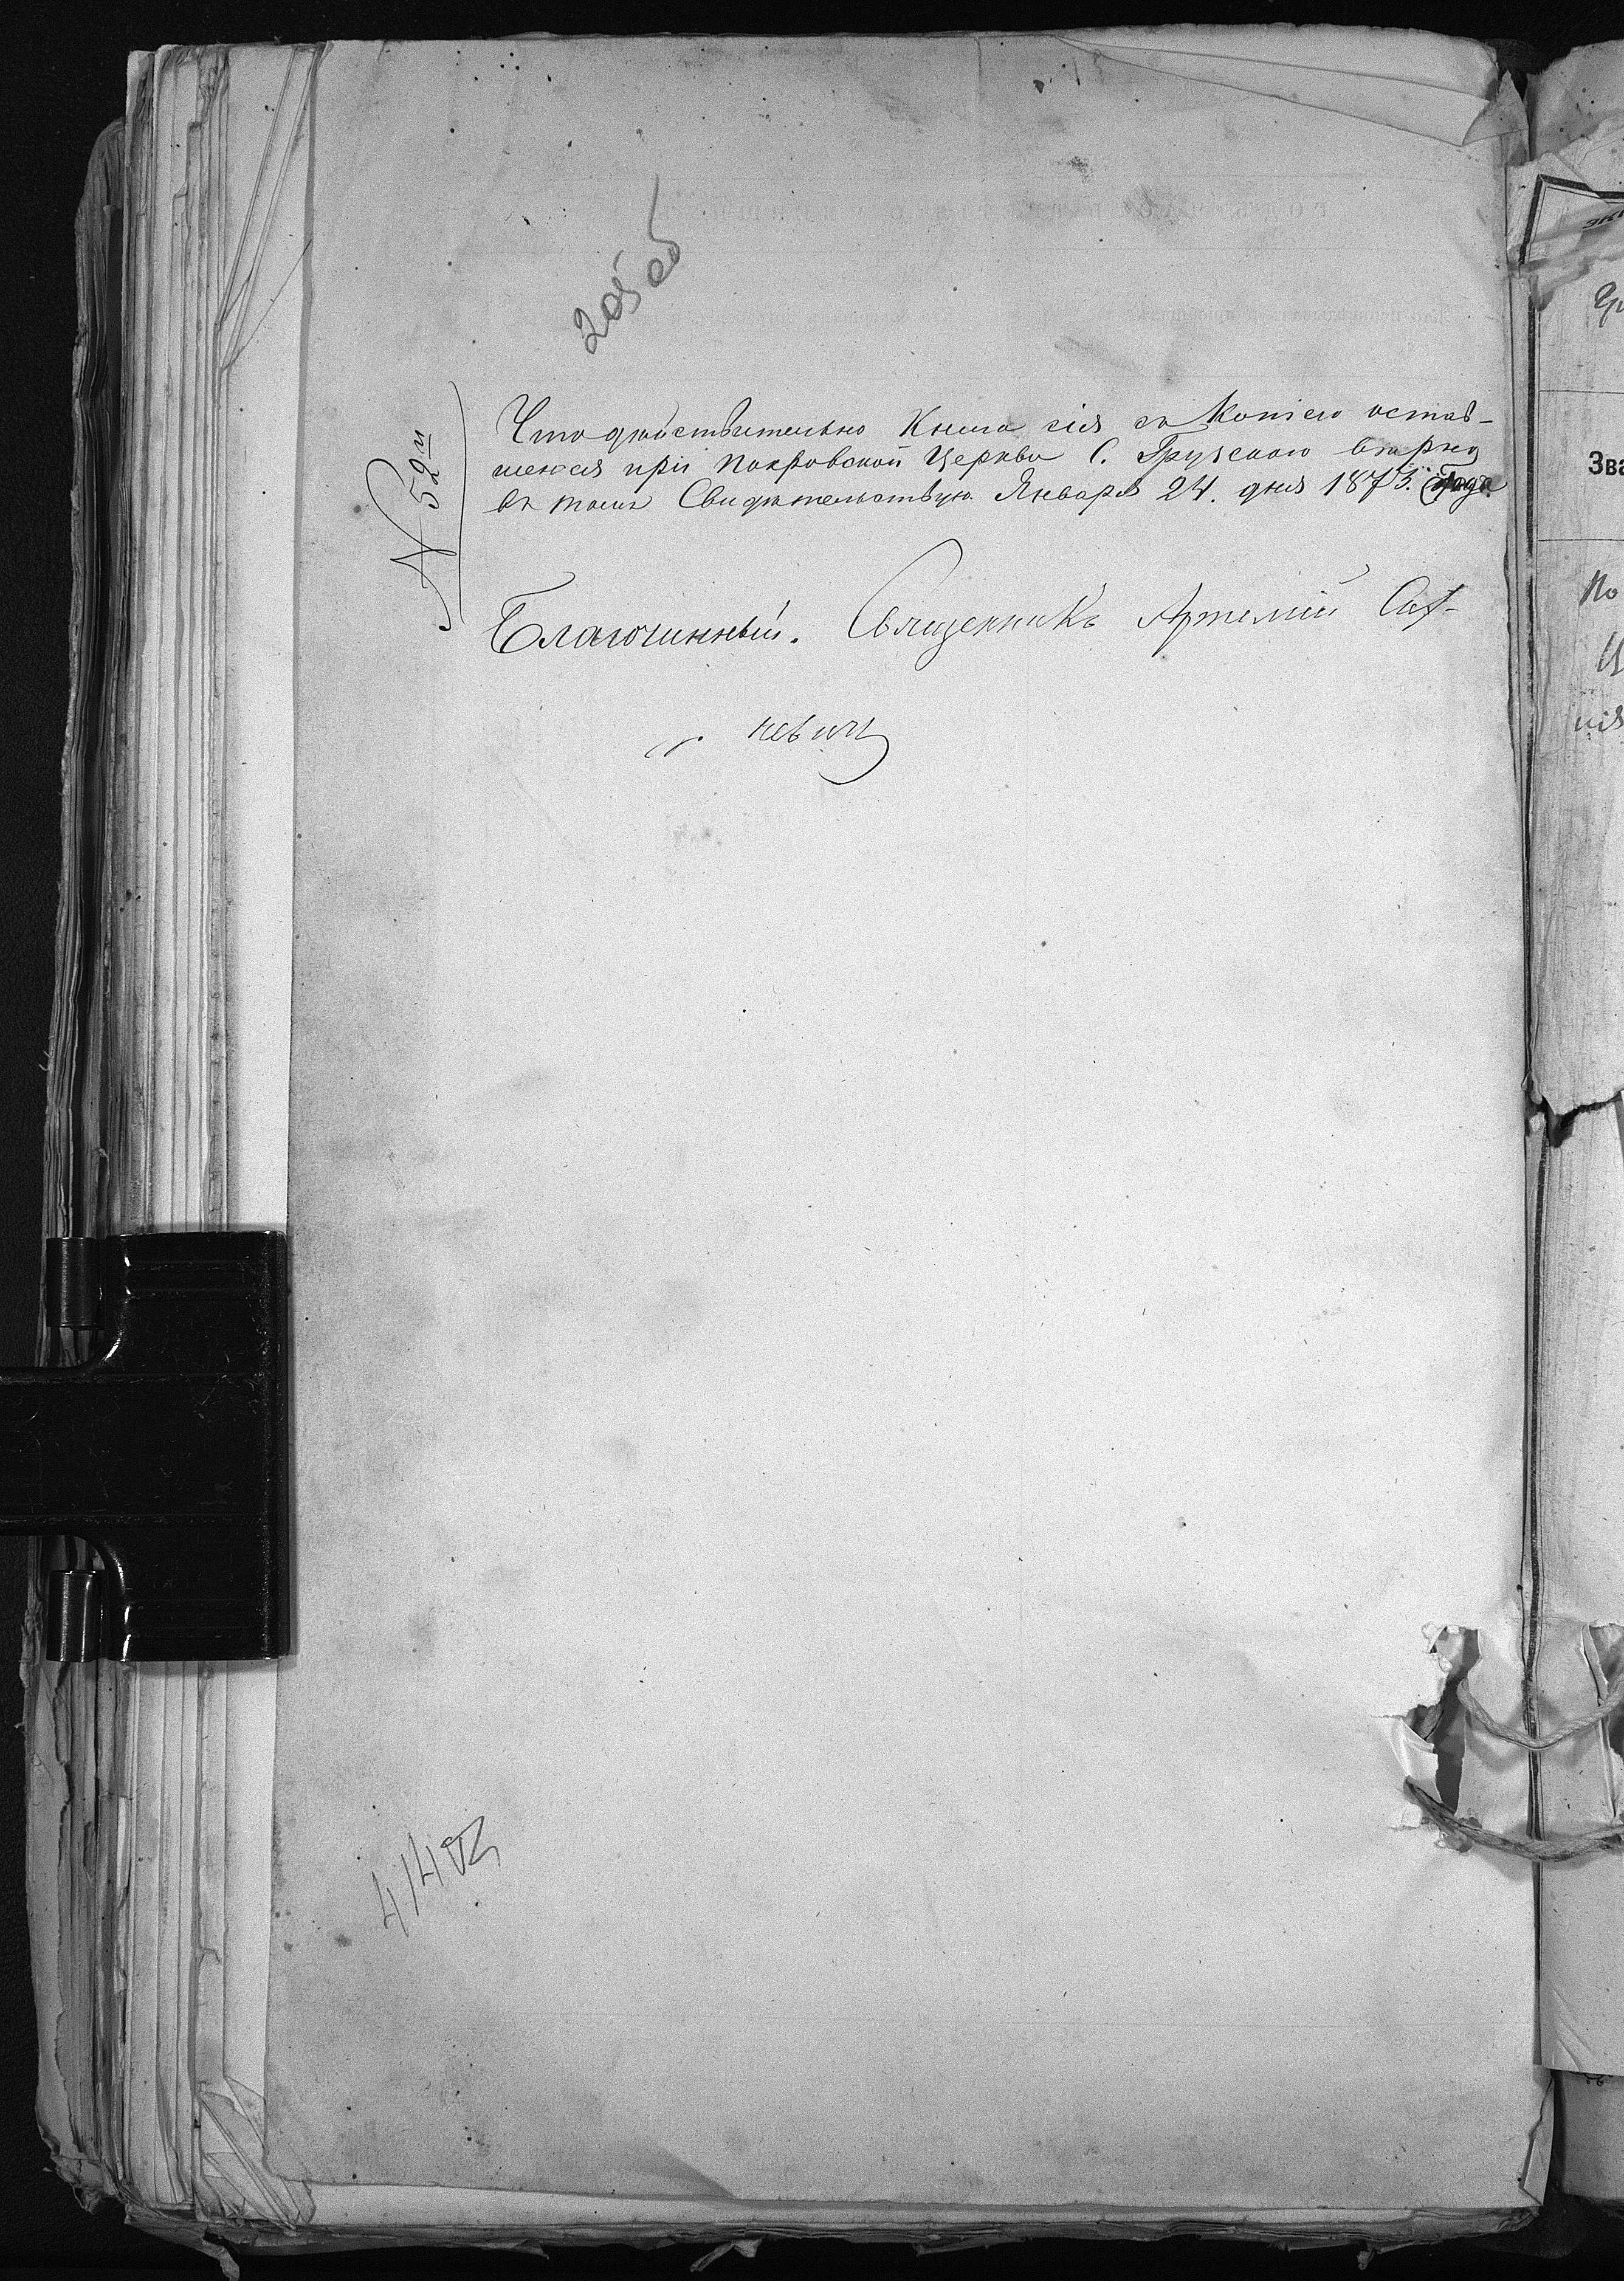 205 об
№ 52й
Что дѣйствительно Книга сія съ Копіею остав-
шеюся при Покровской Церкви С. Грузского вѣрна
въ томъ Свидѣтельствую Января 24. дня 1873. Года
Благочинный. Священникъ Артемій Сах-
невичъ
414